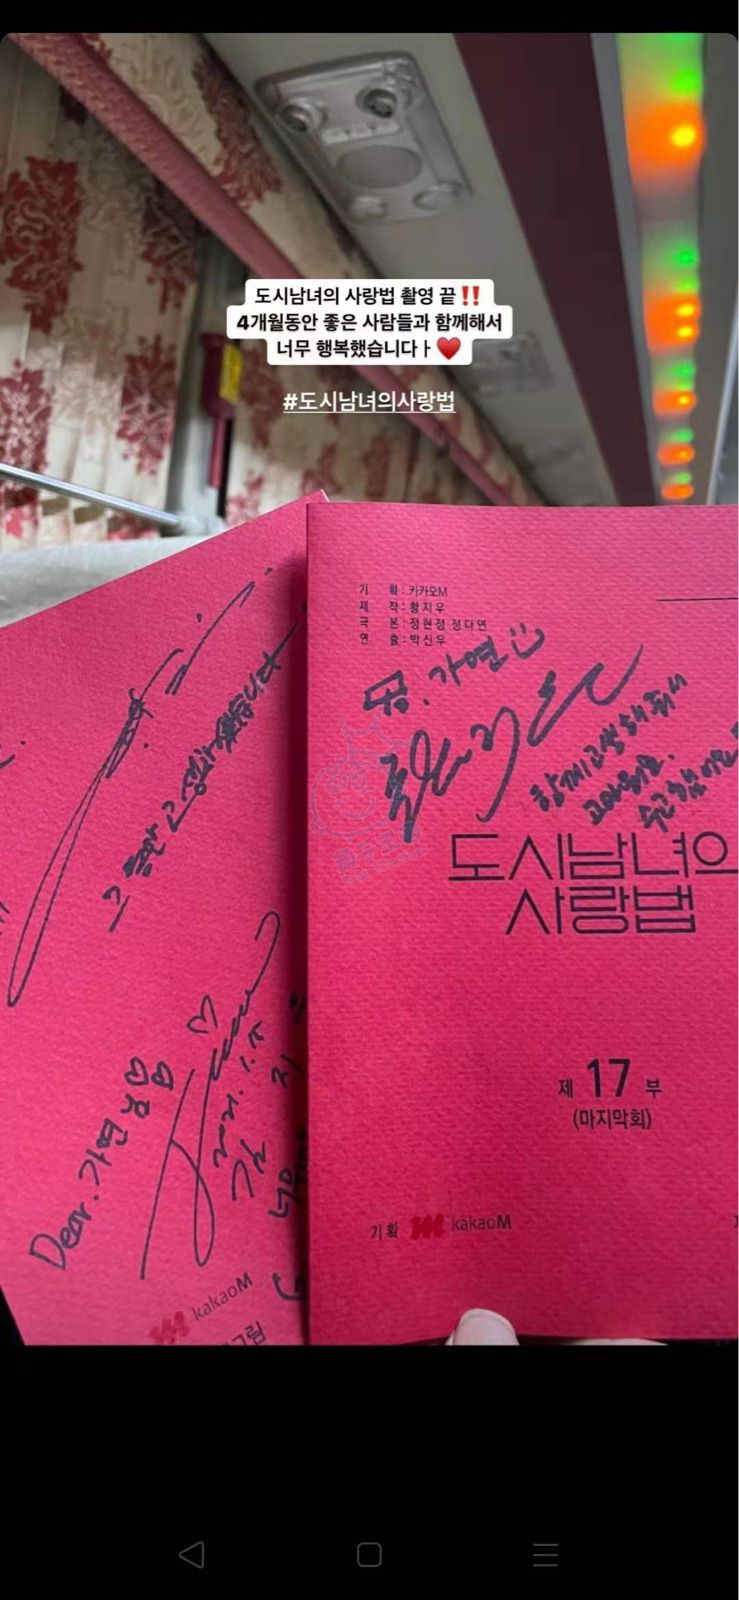 도시남녀의 사랑법 촬영 끝‼️
4개월동안 좋은 사람들과 함께해서
너무 행복했습니다ㅏ♥️
#도시남녀의사랑법
기 획 : 카카오M
제 작 : 황지우
극 본 : 정현정 정다연
연 출 : 박신우
공. 가연
함께 고생해줘서
고마워요.
도시남녀의
사랑법
제 17 부
(마지막회)
기획 kakaoM
그 동안 고생많았습니다
Dear. 가연님
2021. 1.
kakaoM
그림